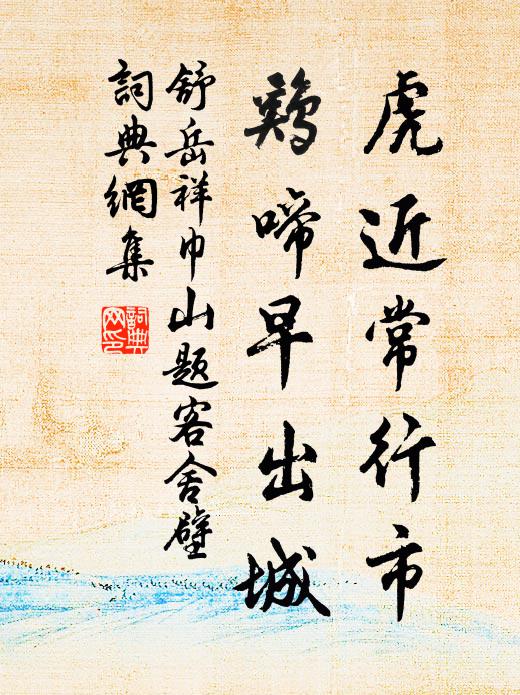 虎近常行市
鷄啼早出城
舒岳祥巾山题客舍壁
詞典網集
詞典
网印